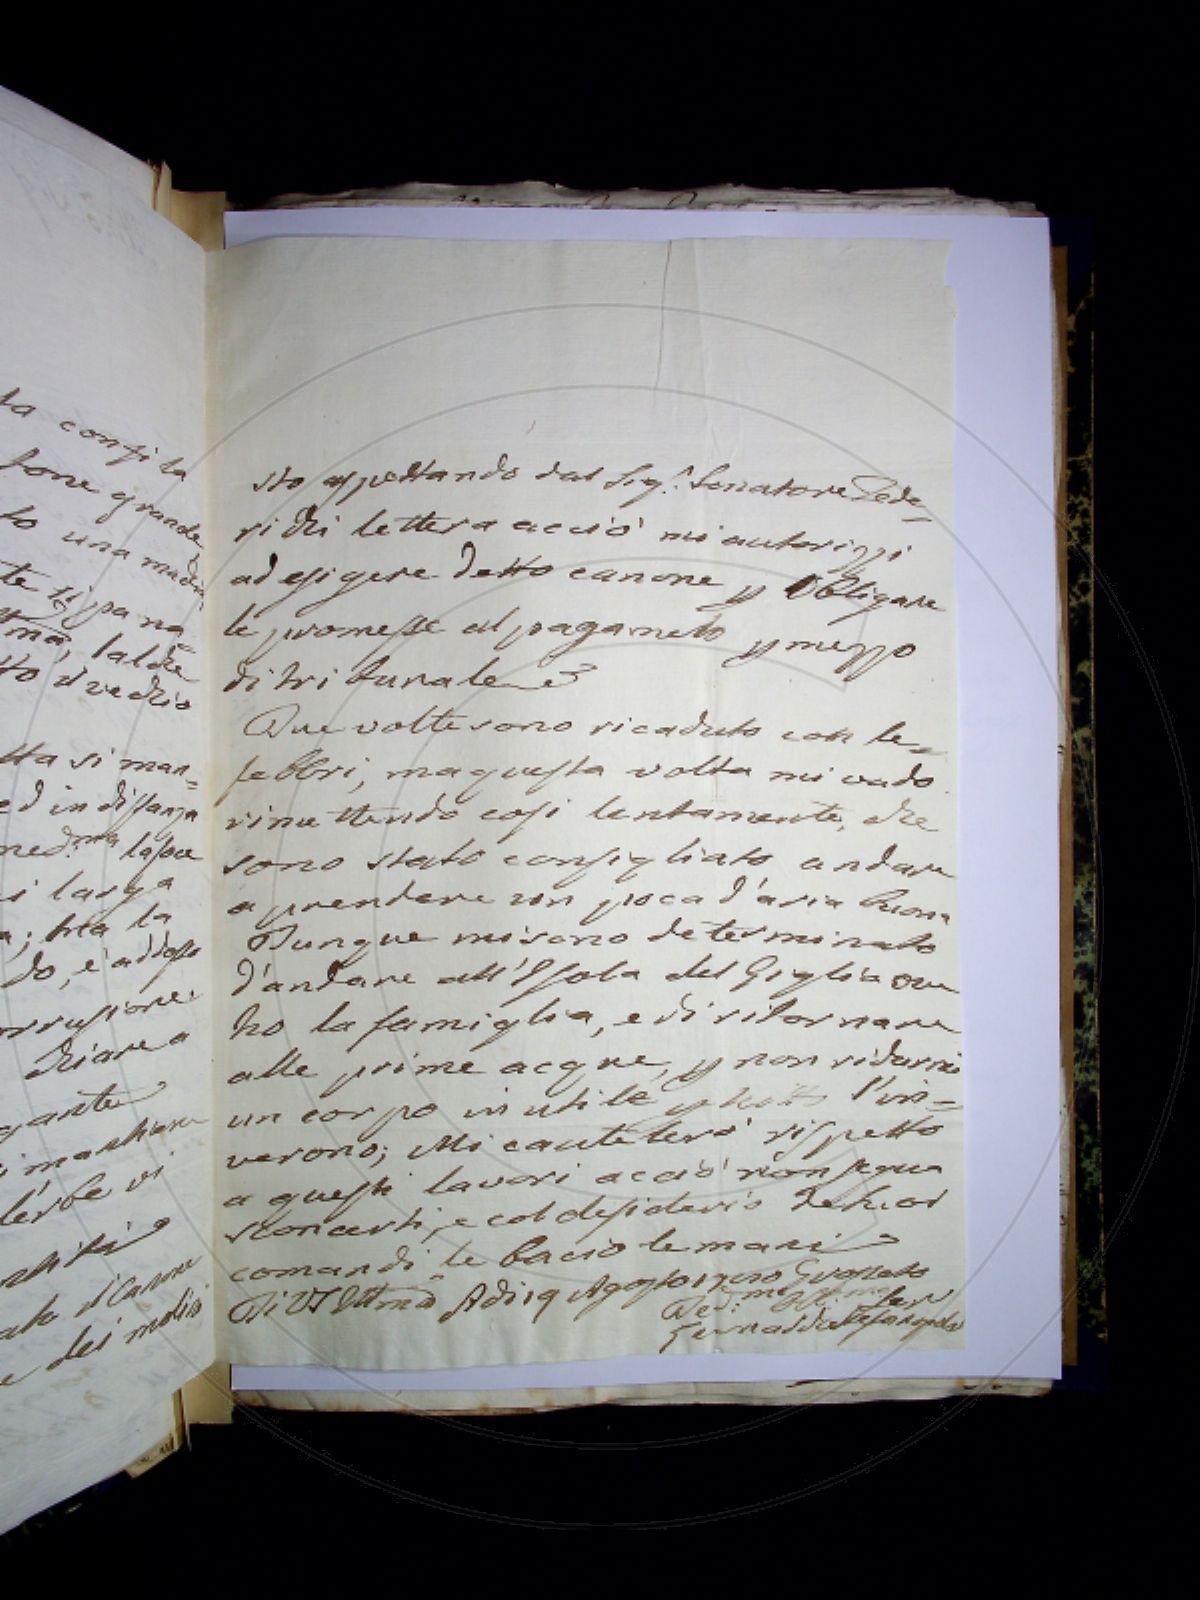 ta confita
forse grande
to una madie
te si pana
tma, laltre
tto il vechio
tta si man-
ed in distanza
med.ma lasoe
i larga
a; ma la
do, è addosso
orrusione
chiare a
gante
i'marchiare
l'erbe vi
ato il Canone
e dei molini
sto aspettando dal Sig.r Senatore Fede-
ri chi lettera acciò mi autorizzi
ad esigere detto canone p obligare
le promesse al pagameto p mezzo
di tribunale e
Due volte sono ricaduto con le
febbri, ma questa volta mi vado
rimettendo cosi lentamente, che
sono stato consigliato andare
a prendere un poca d'aria buona
Dunque mi sono determinato
d'andare all'Isola del Giglio ove
ho la famiglia, e di ritornare
alle prime acque, p non ridurmi
un corpo inutile p tutto l'in-
verono; Mi cautelerò rispetto
a questi lavori acciò non segua
sconcerti, e col desiderio de suoi
comandi le bacio le mani
Di VS Ill.ma Adi 19 Agosto Grosseto
Ded.mo Obb.mo Ser.e